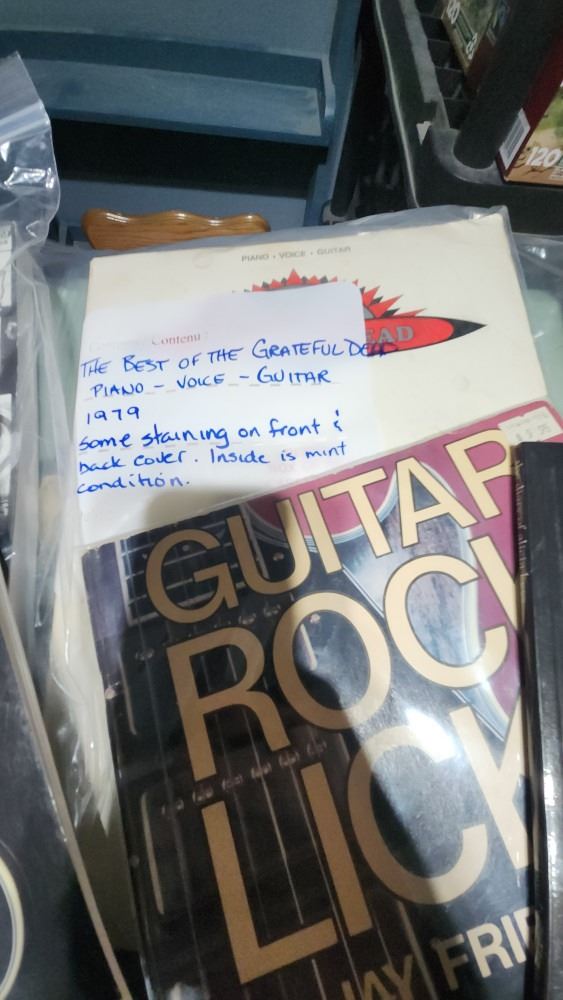 120
PIANO • VOICE • GUITAR
EAD
Contenu
THE BEST OF THE GRATEFUL DEAD
PIANO - VOICE - GUITAR
1979
some staining on front &
back cover. Inside is mint
condition.
GUITAR
ROCK
LICK
JAY FRI